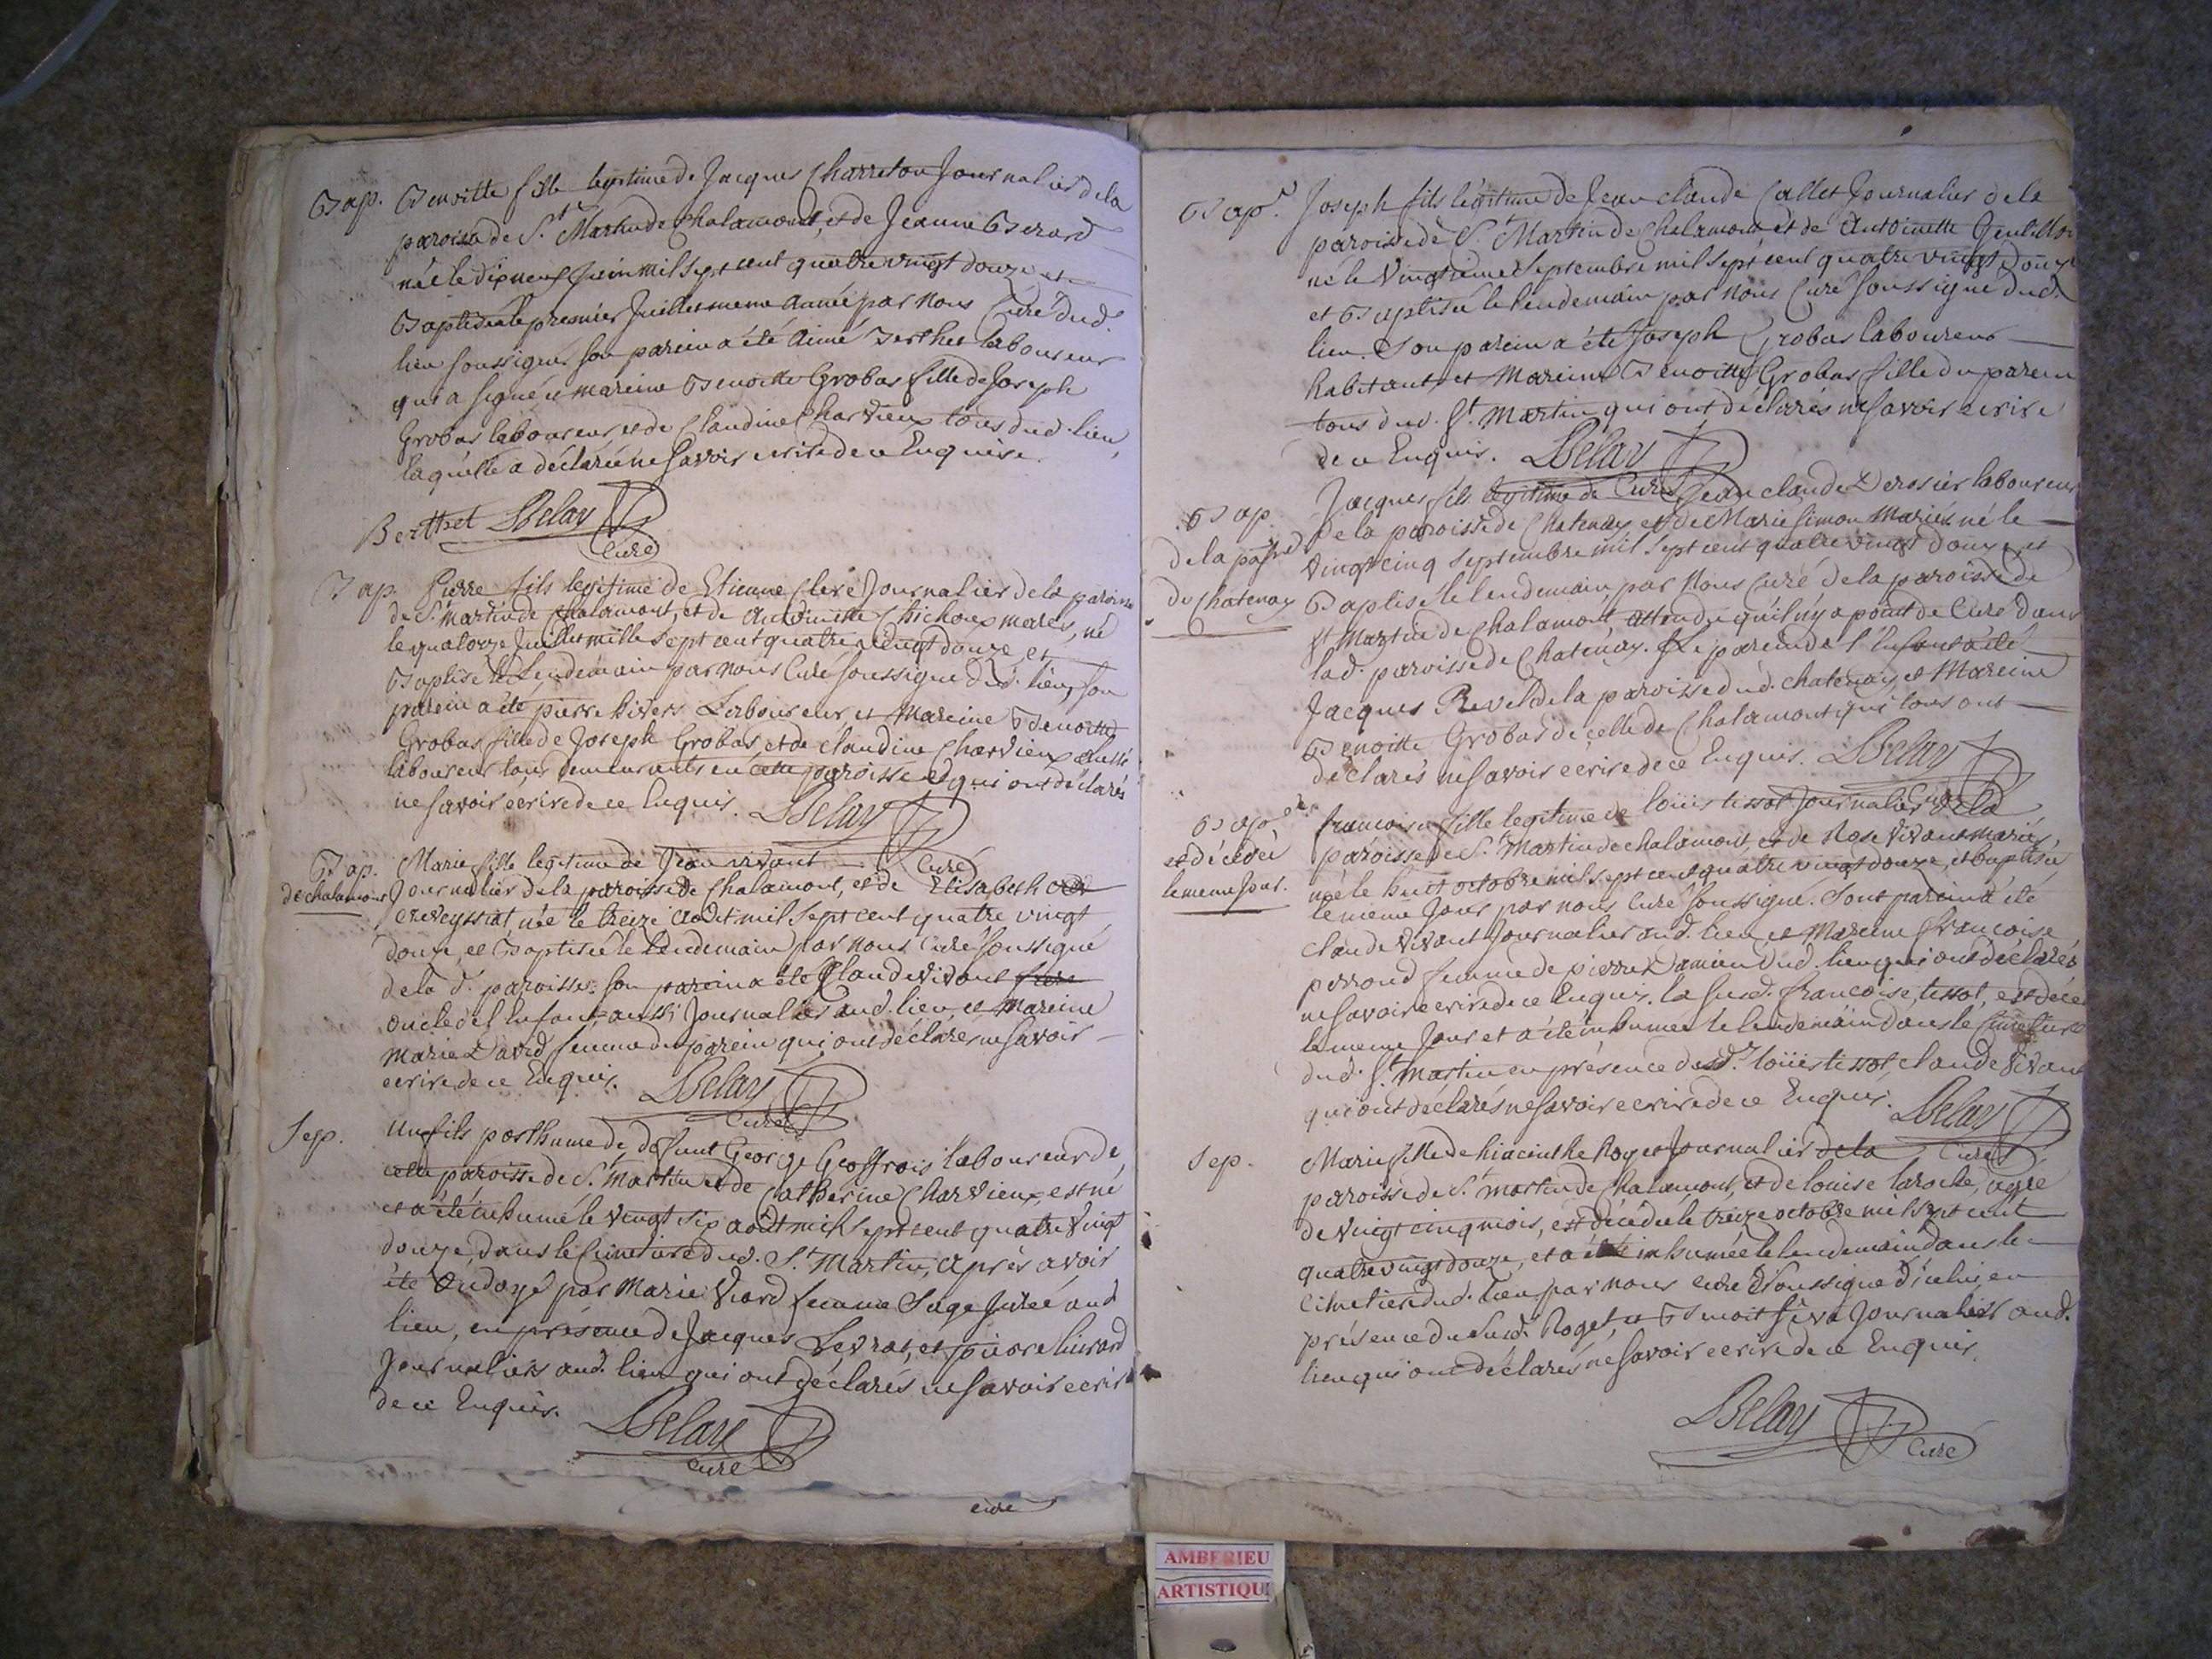 Bap. Benoitte fille legitime de Jacques Charreton Journalier dela
paroisse de St. Martin de Chalamont, et de Jeanne Berard
née le dix neuf juin mil sept cent quatre vingt douze et
Baptisée le premier Juillet meme année par nous Curé dud.
lieu soussigné, son parein a été Aimé Berthet laboureur
qui a signé et mareine Benoitte Grobas fille de Joseph
Grobas laboureur et de Claudine Charvieux tous dud. lieu,
laquelle a déclarée ne savoir ecrire de ce Enquise.
Berthet LBelay
Curé
Bap. Pierre fils legitime de Etienne Clerc Journalier dela paroisse
de St. Martin de Chalamont, et de Antoinette Chichoux mariés, né
le quatorze Juillet mille sept cent quatre vingt douze et
Baptisé le Lendemain par nous Curé soussigné dud. lieu, son
parein a été pierre hivers Laboureur et Mareine Benoitte
Grobas fille de Joseph Grobas et de claudine Charvieux aussi
laboureur tous demeurants en cette paroisse et qui ont déclarés
ne savoir écrire de ce Enquis. LBelay
Curé
Bap. Marie fille legitime de Jean vivant
de chalamont Journalier de la paroisse de Chalamont, et de Elisabeth
creveyssiat, née le treize Août mil sept cent quatre vingt
douze, et Baptisée le lendemain par nous Curé soussigné
de la d. paroisse. son parein a été Claude Vivant frere
oncle de l'Enfant, aussi Journalier aud. lieu, et Mareine
Marie David femme du parein qui ont déclarés ne savoir
ecrire de ce Enquis. LBelay
Curé
Sep. Un fils posthume de défunt George Geoffrois laboureur de
cette paroisse de St. Martin et de Catherine Charvieux, est né
et a été inhumé le vingt six août mil sept cent quatre vingt
douze, dans le Cimetiere dud. St. Martin, après avoir
été Ondoyé par Marie Viard femme Sage Jurée aud
lieu, en présence de Jacques Levrat, et pierre
Journaliers aud. lieu qui ont déclarés ne savoir ecrire
de ce Enquis. LBelay
curé
curé
Bap. Joseph fils légitime de Jean claude Callet Journalier dela
paroisse de St. Martin de Chalamont et de Antoinette
né le vingtieme Septembre mil sept cent quatre vingt Douze
et Baptisé le lendemain par nous Curé soussigné dud.
lieu. Son parein a été Joseph Grobas laboureur
habitant et Mareine Benoitte Grobas fille du parein
tous dud. St. Martin qui ont déclarés ne savoir ecrire
de ce Enquis. LBelay
Curé
Jacques fils legitime de Jean claude Derosier laboureur
Bap. De la paroisse de Chatenay et de Marie Simon Mariés né le
de la passe vingt cinq septembre mil sept cent quatre vingt douze, et
de Chatenay Baptisé le lendemain par Nous curé dela paroisse de
St Martin de Chalamont, attendu qu'il n'y a point de Curé dans
lad. paroisse de Chatenay. Le parein de l'Enfant a été
Jacques Revel de la paroisse dud. chatenay, et Mareine
Benoitte Grobas de celle de Chalamont qui tous ont
déclarés ne savoir ecrire de ce Enquis. LBelay
Curé
Bap. francoise fille legitime de loüis tissot Journalier dela
et décédée paroisse de St. Martin de chalamont, et de Rose Vivant mariés,
le meme Jour. née le huit octobre mil sept cent quatre vingt douze, et baptisée
le meme Jour par nous Curé soussigné. Sont parein a été
claude Vivant Journalier aud. lieu, et Mareine francoise
perroud femme de pierre Damien dud. lieu qui ont déclarés
ne savoir ecrire de ce Enquis. la susd. francoise tissot, est décé
le meme Jour et a été inhumée le lendemain dans le Cimetiere
dud. St. Martin en présence desdts. loüis tissot, claude Vivant
qui ont déclarés ne savoir ecrire de ce Enquis. LBelay
Curé
Sep. Marie fille de hiacinthe Roget Journalier dela
paroisse de St. Martin de Chalamont, et de louise laroche, agée
de vingt cinq mois, est décédée le treize octobre mil sept cent
quatre vingt douze, et a été inhumée le lendemain dans le
Cimetiere dud. lieu par nous curé soussigné d'icelui, en
présence du susd. Roget, et Benoit Journalier aud.
lieu qui ont déclarés ne savoir ecrire de ce Enquis.
LBelay
Curé
AMBERIEU
ARTISTIQU